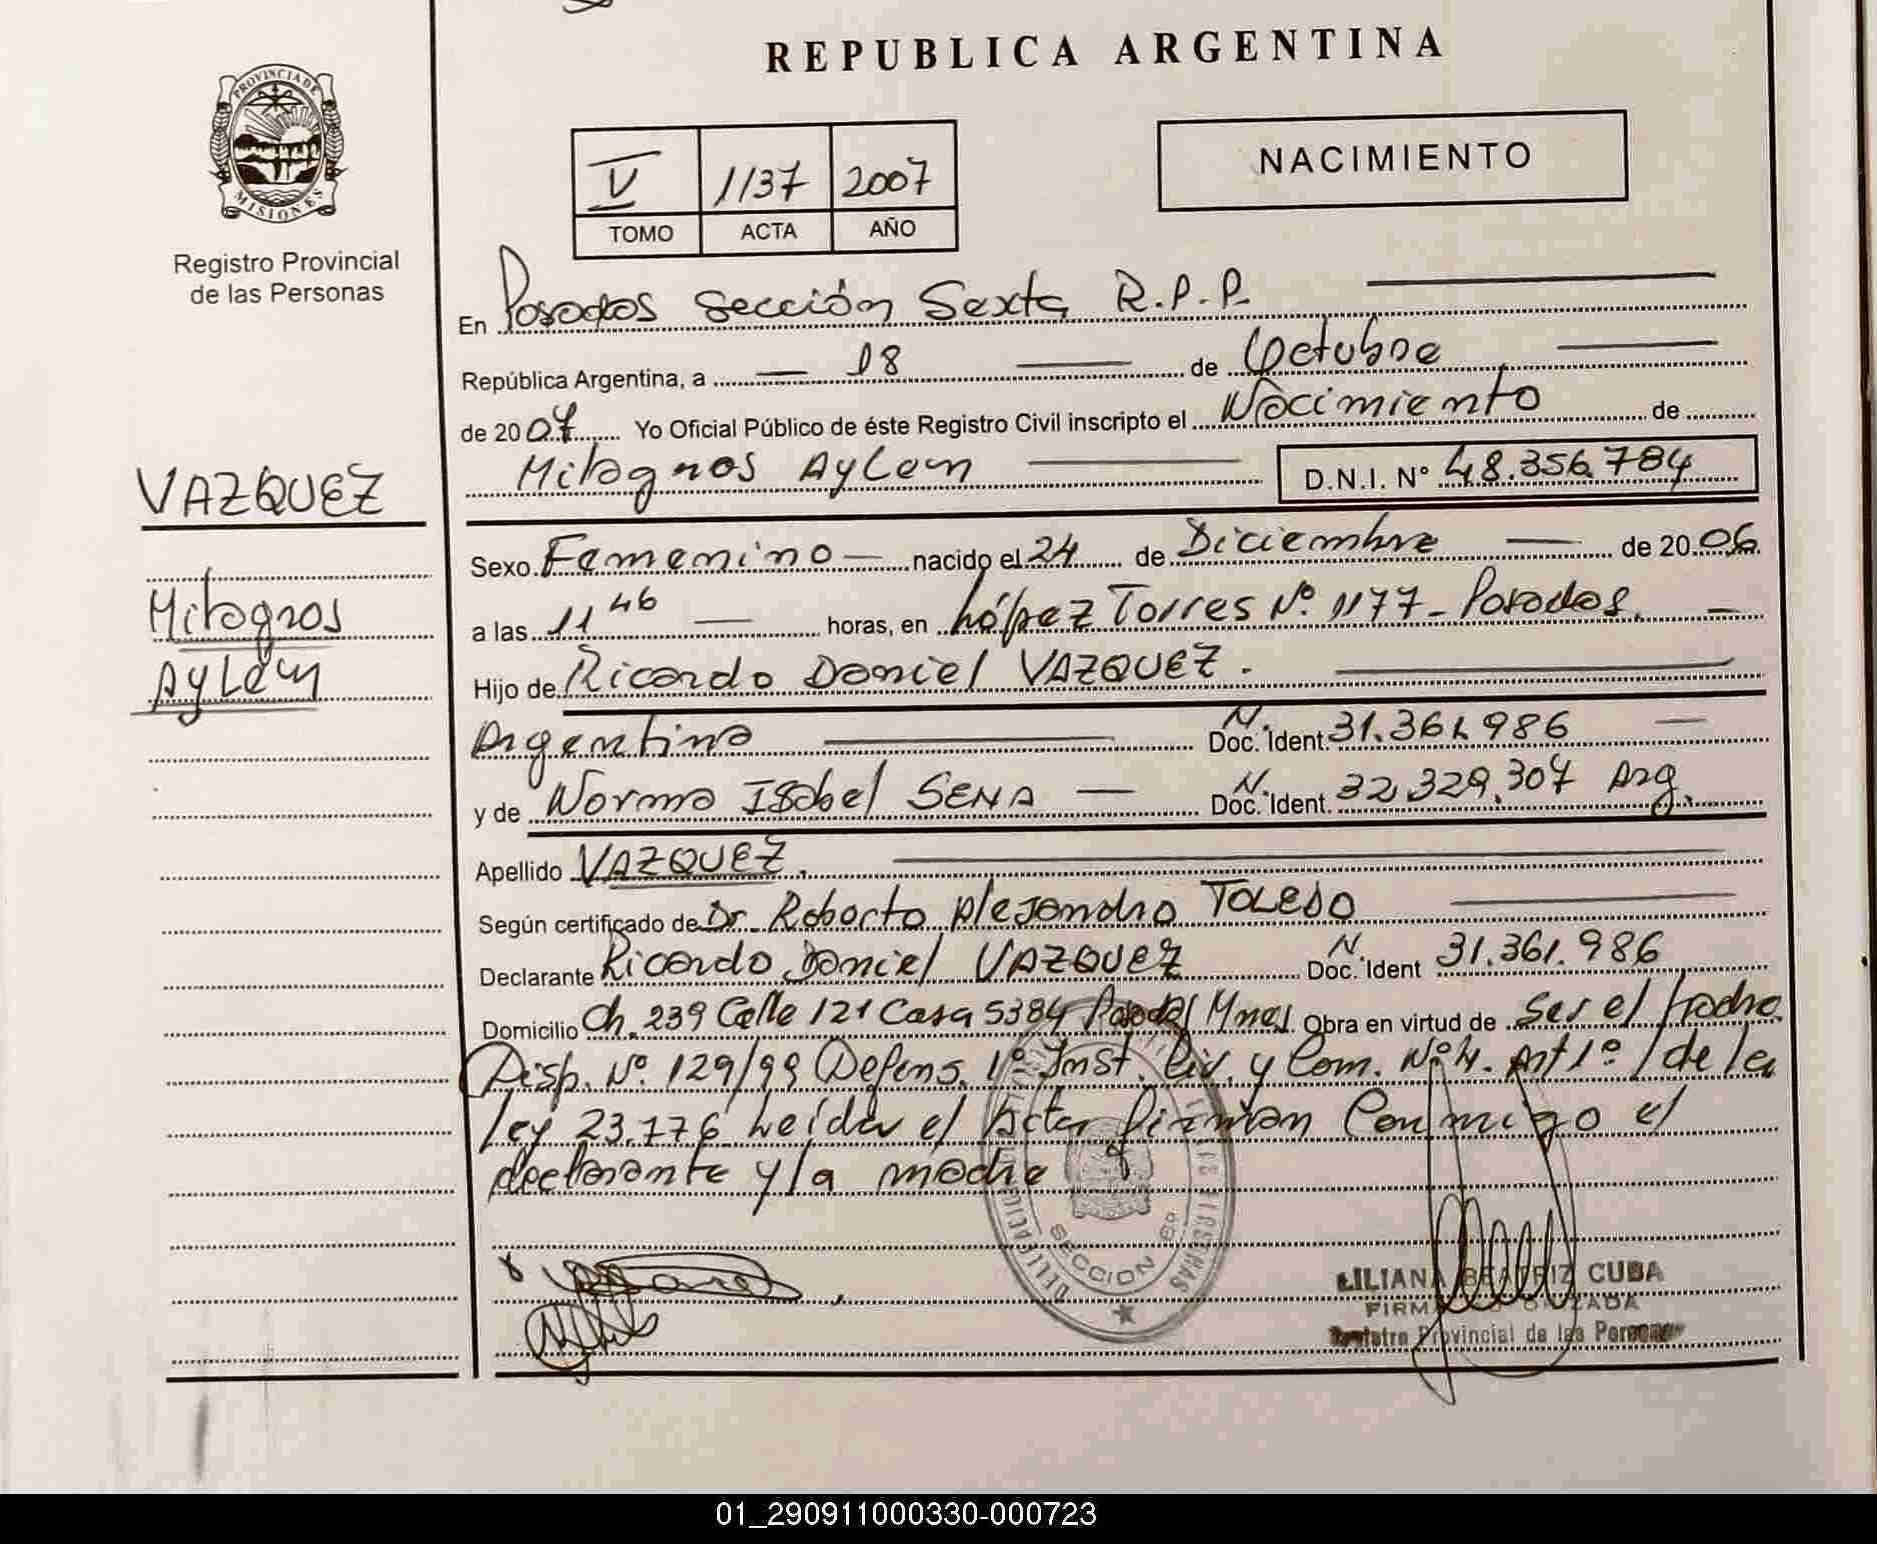 REPUBLICA ARGENTINA
PROVINCIA DE MISIONES
Registro Provincial
de las Personas
V 1137 2007
TOMO ACTA AÑO
NACIMIENTO
En Posadas Sección Sexta R.P.P.
República Argentina, a 18 de Octubre
de 2007 Yo Oficial Público de éste Registro Civil inscripto el Nacimiento de
Milagros Aylen D.N.I. N° 48.356.784
VAZQUEZ
Milagros
Aylen
Sexo Femenino nacido el 24 de Diciembre de 2006
a las 11 46 horas, en López Torres N° 1177 - Posadas.
Hijo de Ricardo Daniel VAZQUEZ.
Argentino N. Doc. Ident. 31.361.986
y de Norma Isabel SENA N. Doc. Ident. 32.329.307 Arg.
Apellido VAZQUEZ.
Según certificado de Dr. Roberto Alejandro TOLEDO
Declarante Ricardo Daniel VAZQUEZ N. Doc. Ident 31.361.986
Domicilio Ch. 239 Calle 121 Casa 5384 Posadas Mnes. Obra en virtud de Ser el padre
Disp. N° 129/99 Defens. 1° Inst. Civ. y Com. N° 4. Art 1° de la
ley 23.776 Leída el Acta firman Conmigo el
declarante y la madre
SECCION 6a
LILIANA BEATRIZ CUBA
FIRMA AUTORIZADA
Registro Provincial de las Personas
01_290911000330-000723